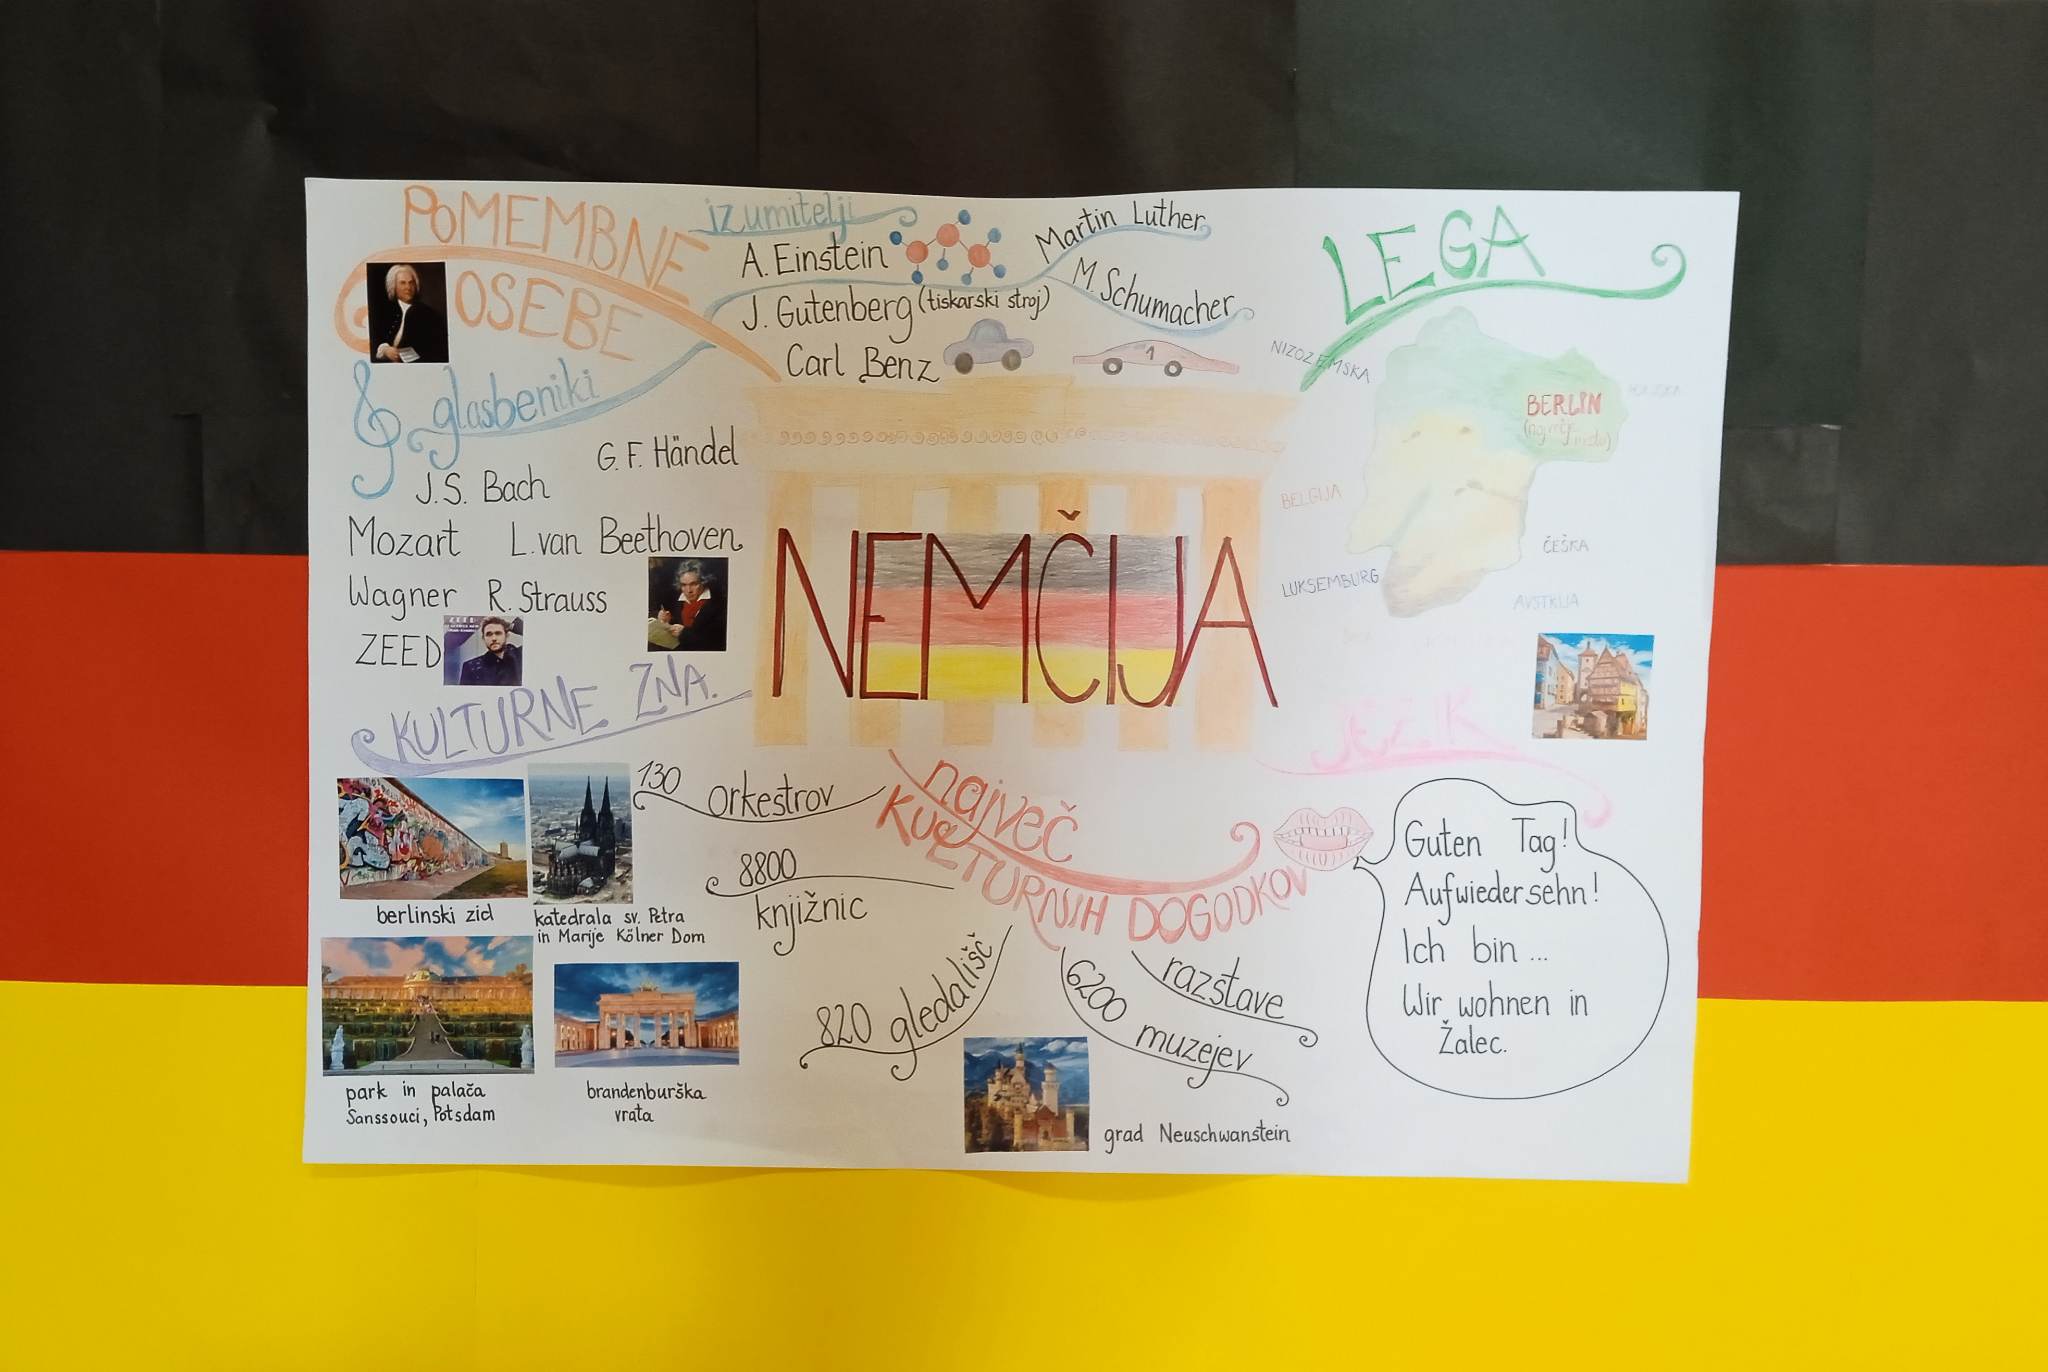 POMEMBNE
OSEBE
izumitelji
A. Einstein
J. Gutenberg (tiskarski stroj)
Carl Benz
Martin Luther
M. Schumacher
1
glasbeniki
G. F. Händel
J.S. Bach
Mozart L. van Beethoven
Wagner R. Strauss
ZEED
ZEDD
NEMČIJA
LEGA
NIZOZEMSKA
BERLIN
(največje
mesto)
BELGIJA
ČEŠKA
LUKSEMBURG
AVSTRIJA
KULTURNE ZNA.
berlinski zid
katedrala sv. Petra
in Marije Kölner Dom
park in palača
Sanssouci, Potsdam
brandenburška
vrata
največ
KULTURNIH DOGODKOV
130 orkestrov
8800
knjižnic
820 gledališč
6200 muzejev
razstave
grad Neuschwanstein
JEZIK
Guten Tag!
Aufwiedersehn!
Ich bin ...
Wir wohnen in
Žalec.